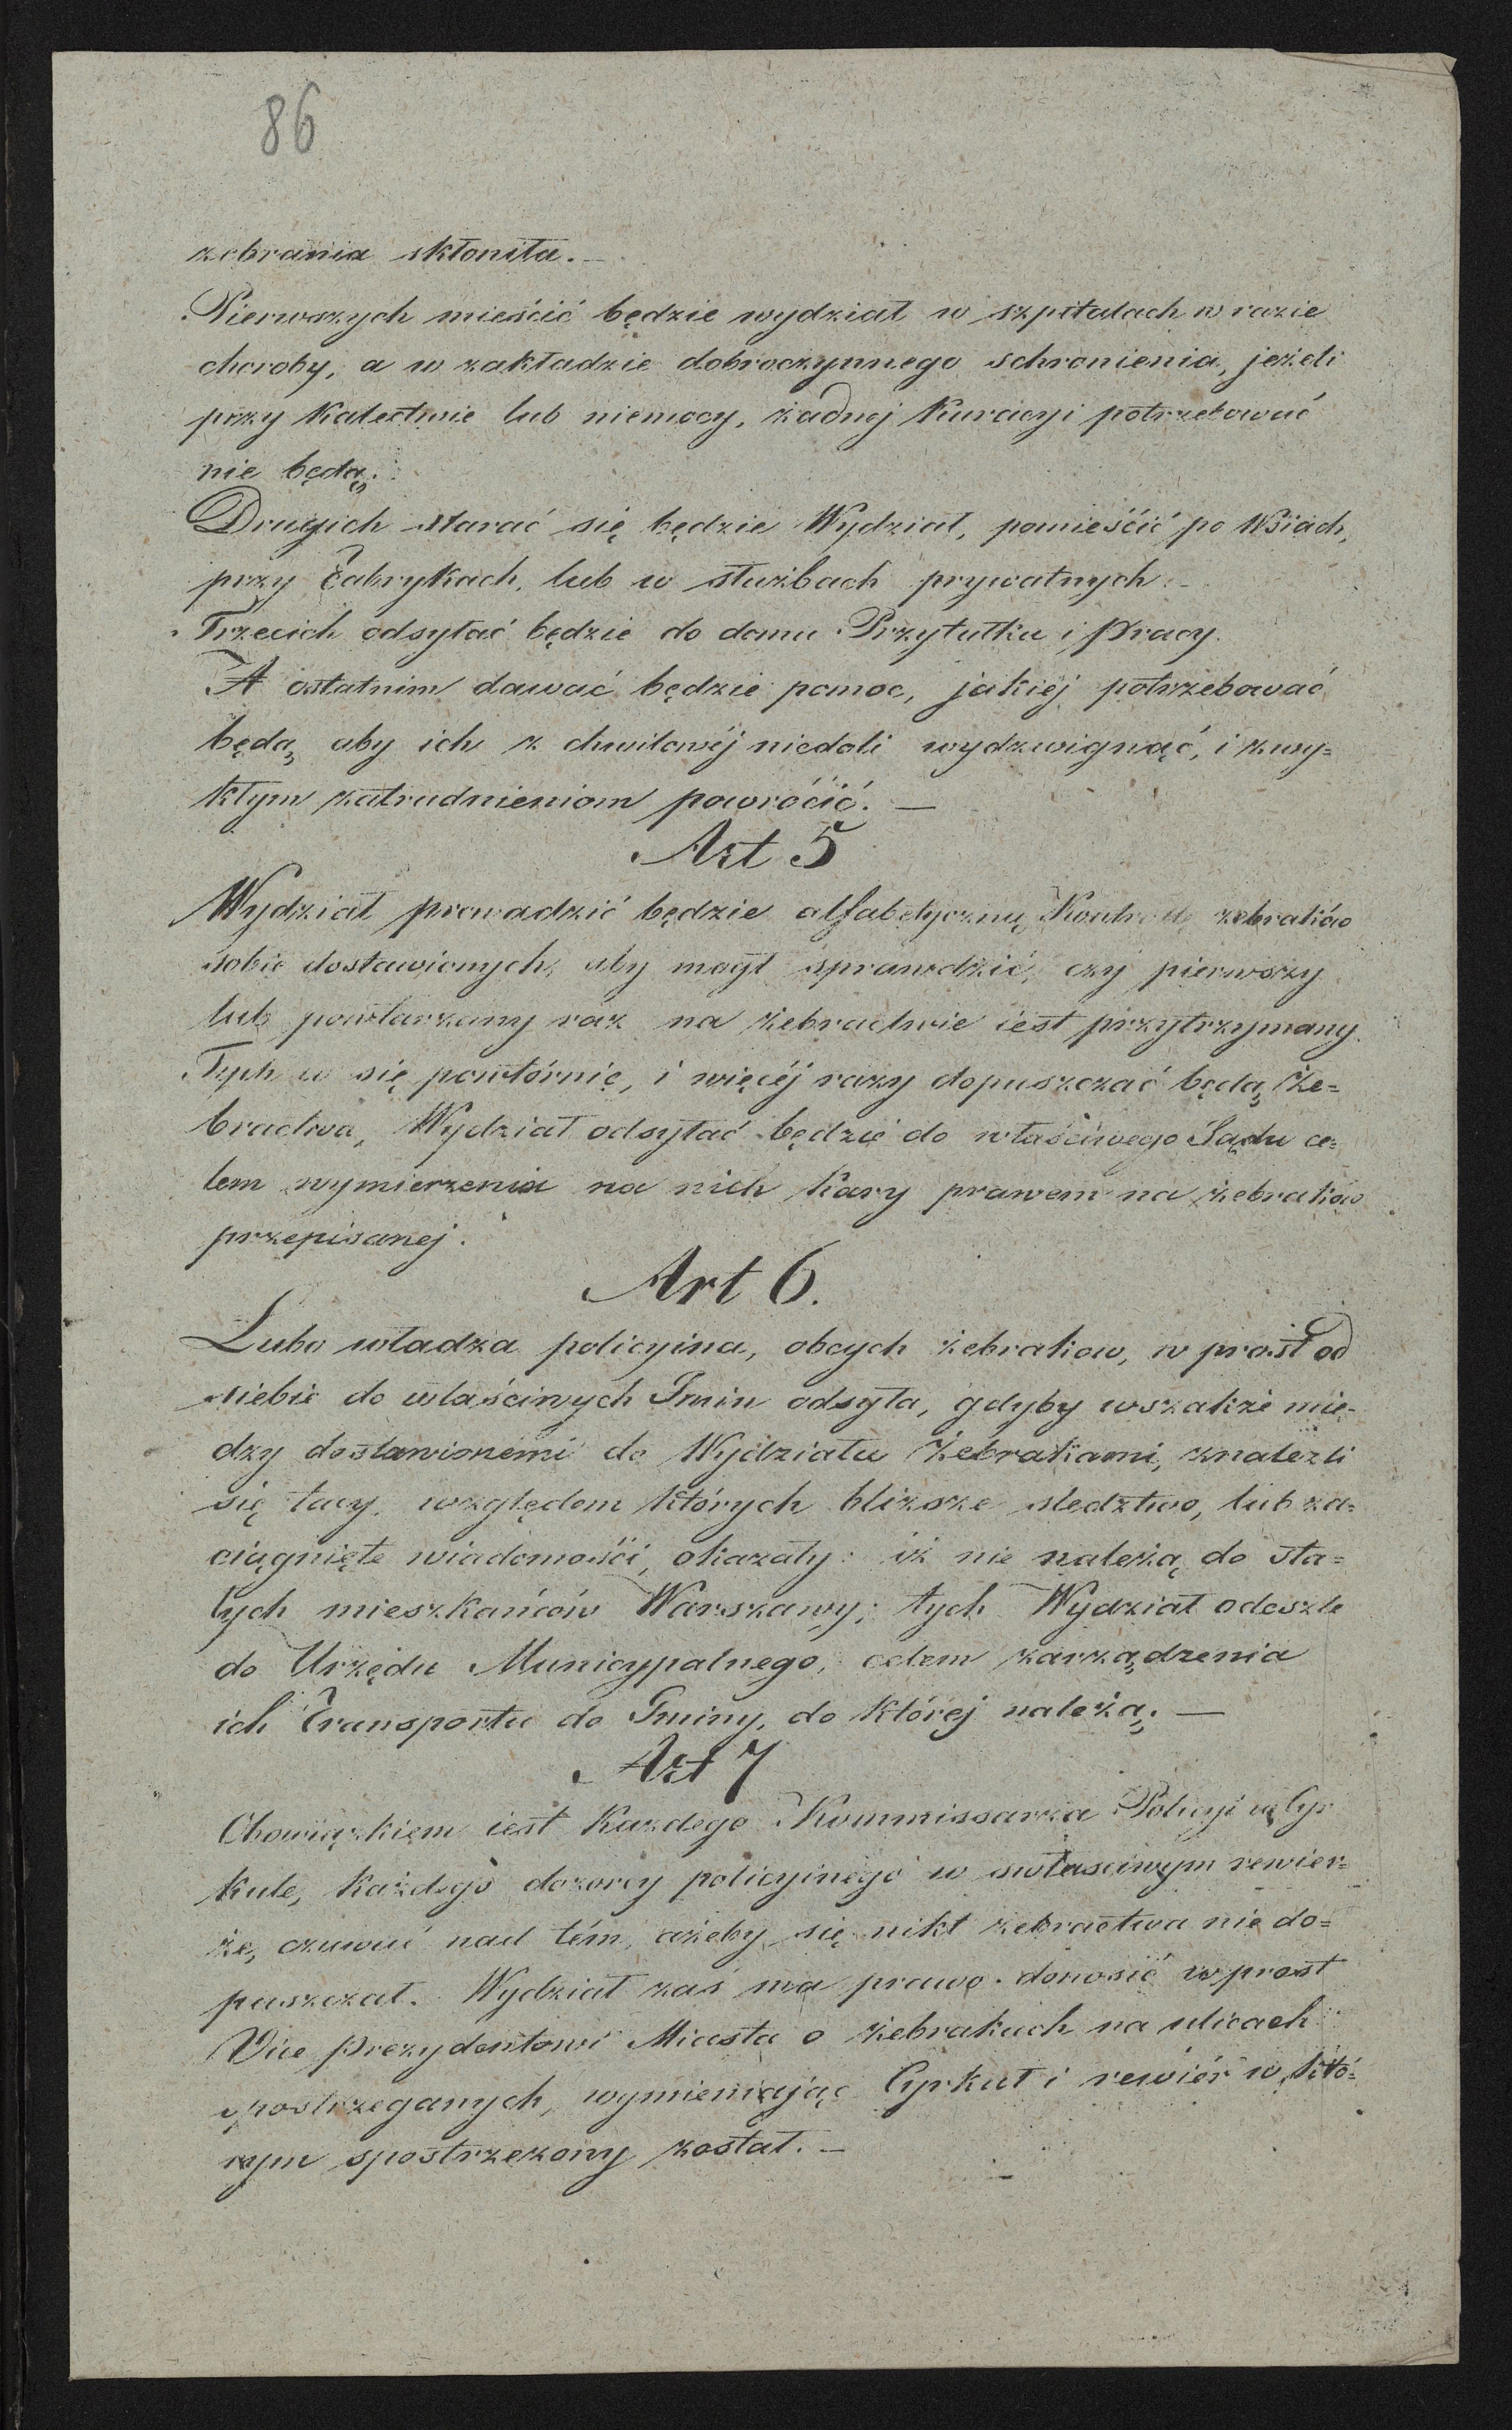 86
żebrania skłoniła. —
Pierwszych mieścić będzie wydział w szpitalach w razie
choroby, a w zakładzie dobroczynnego schronienia, jeżeli
przy Kalectwie lub niemocy, żadnej Kuracyi potrzebować
nie będą.
Drugich starać się będzie Wydział, pomieścić po Wsiach,
przy Fabrykach, lub w służbach prywatnych. —
Trzecich odsyłać będzie do domu Przytułku i Pracy.
A ostatnim dawać będzie pomoc, jakiej potrzebować
będą aby ich z chwilowéj niedoli wydzwignąć, i zwy=
kłym zatrudnieniom powrócić. —
Art 5
Wydział prowadzić będzie alfabetyczną Kontrolę żebraków
sobie dostawionych, aby mógł sprawdzić, czy pierwszy
lub powtarzany raz na żebractwie iest przytrzymany.
Tych co się powtórnie, i więcéj razy dopuszczać będą że=
bractwa, Wydział odsyłać będzie do właściwego Sądu ce=
lem wymierzenia na nich Kary prawem na żebraków
przepisanej.
Art 6.
Lubo władza policyina, obcych żebraków, w prost od
siebie do właściwych Gmin odsyła, gdyby wszakże mię-
dzy dostawionemi do Wydziału Żebrakami, znaleźli
się tacy, względem których bliższe śledztwo, lub za=
ciągnięte wiadomości, okazały: iż nie należą do sta=
łych mieszkańców Warszawy; tych Wydział odeszle
do Urzędu Municypalnego, celem zarządzenia
ich Transportu do Gminy, do której należą. —
Art 7
Obowiązkiem iest Każdego Kommissarza Policyi w Cyr
kule, Każdego dozorcy policyinego w swłaściwym rewier=
ze, czuwać nad tém, ażeby się nikt żebractwa nie do=
puszczał. Wydział zaś ma prawo donosić wprost
Vice Prezydentowi Miasta o żebrakach na ulicach
spostrzeganych, wymieniając Cyrkuł i rewiér w któ=
rym spostrzeżony został. —